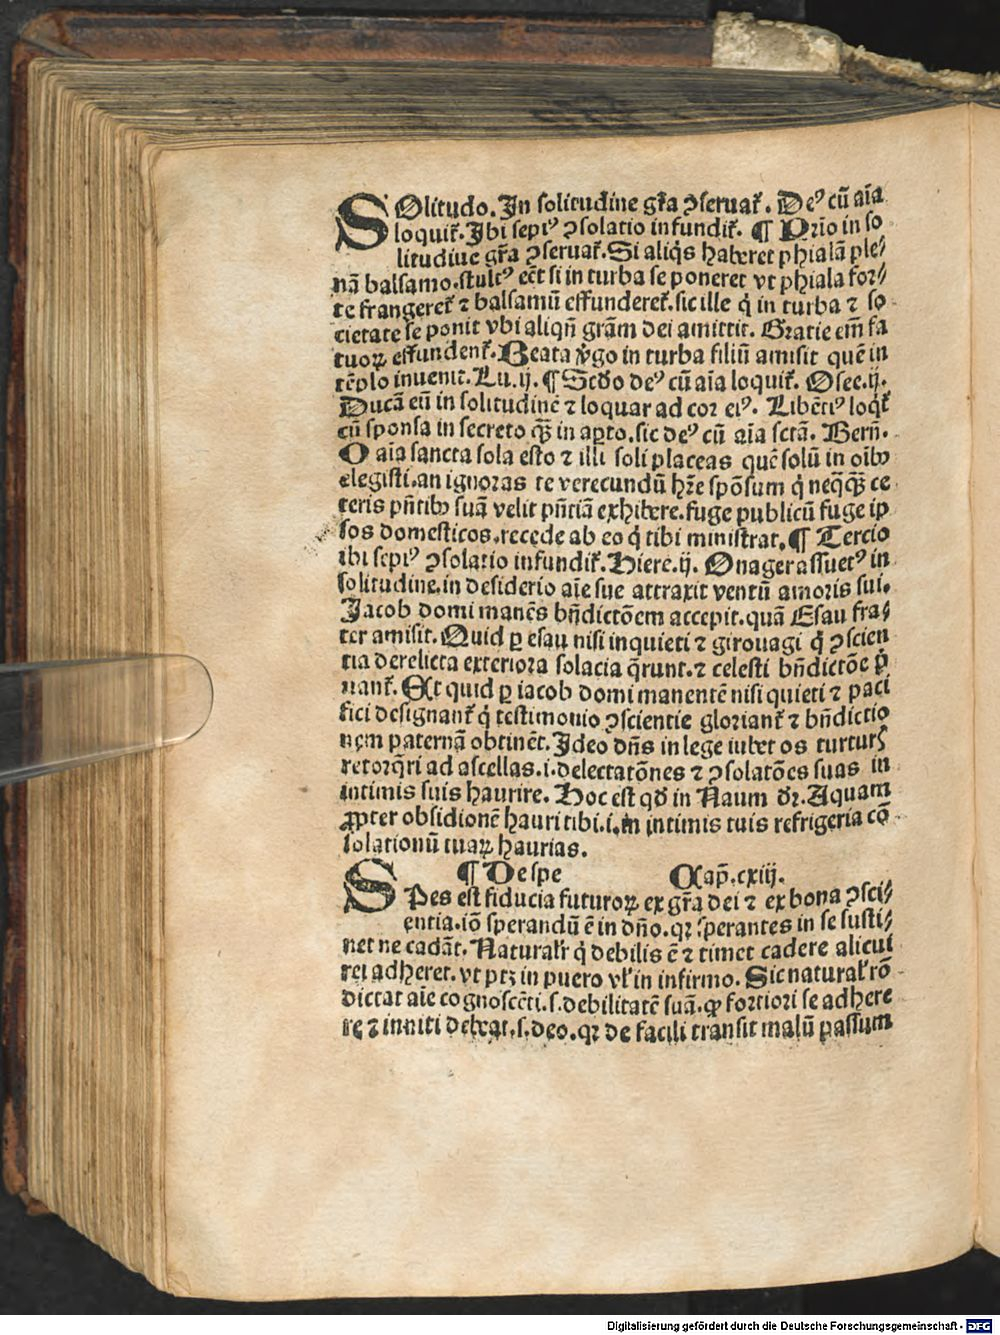 SOlitudo. In solitudine gr̄a ꝯseruat᷑. Deꝰ cū aīa
loquit᷑. Ibi sepiꝰ ꝯsolatio infundit᷑. ¶ Prīo in so
litudiue gr̄a ꝯseruat᷑. Si aliq̄s haberet phialā ple⸗
nā balsamo. stultꝰ eēt si in turba se poneret vt phiala for⸗
te frangeret᷑ ⁊ balsamū effunderet᷑. sic ille q̇ in turba ⁊ so
cietate se ponit vbi aliqn̄ grām dei amittit. Gratie em̄ fa
tuoꝝ effundent᷑. Beata v̇go in turba filiū amisit quē in
tēplo inuenit. Lu. ij. ¶ Scd̄o deꝰ cū aīa loquit᷑. Osee. ij.
Ducā eū in solitudinē ⁊ loquar ad cor eiꝰ. Libētiꝰ loq̇t᷑
cū sponsa in secreto q̄ꝫ in aꝑto. sic deꝰ cū aīa sctā. Bern̄.
O aīa sancta sola esto ⁊ illi soli placeas quē solū in oībꝰ
elegisti. an ignoras te verecundū hr̄e spōsum q̇ neq̄q̄ꝫ ce
teris pn̄tibꝰ suā velit pn̄tiā exhibere. fuge publicū fuge ip
sos domesticos. recede ab eo q̇ tibi ministrat. ¶ Tercio
ibi sepiꝰ ꝯsolatio infundit᷑. Hiere. ij. Onager assuetꝰ in
solitudine. in desiderio aīe sue attraxit ventū amoris sui.
Jacob domi manēs bn̄dictōem accepit. quā Esau fra⸗
ter amisit. Quid ꝑ esau nisi inquieti ⁊ girouagi q̇ ꝯscien
tia derelicta exteriora solacia q̄runt. ⁊ celesti bn̄dictōe ṗ
uant᷑. Et quid ꝑ iacob domi manentē nisi quieti ⁊ paci
fici designant᷑ q̇ testimonio ꝯscientie gloriant᷑ ⁊ bn̄dictio
nem paternā obtinēt. Ideo dn̄s in lege iubet os turturꝭ
retorq̄ri ad ascellas. i. delectatōnes ⁊ ꝯsolatōes suas in
intimis suis haurire. Hoc est qd̄ in Naum dr̄. Aquam
ꝓpter obsidionē hauri tibi. i. in intimis tuis refrigeria cō
solationū tuaꝝ haurias.
¶ De spe Cap̄. cxiij.
SPes est fiducia futuroꝝ ex gr̄a dei ⁊ ex bona ꝯsci⸗
entia. iō sperandū ē in dn̄o. qꝛ sperantes in se susti⸗
net ne cadāt. Natural̓r q̇ debilis ē ⁊ timet cadere alicui
rei adheret. vt ptꝫ in puero vl̓ in infirmo. Sic natural̓ rō
dictat aīe cognoscēti. s. debilitatē suā. ꝙ fortiori se adhere
re ⁊ inniti debeat. s. deo. qꝛ de facili transit malū passum
Digitalisierung gefördert durch die Deutsche Forschungsgemeinschaft - DFG